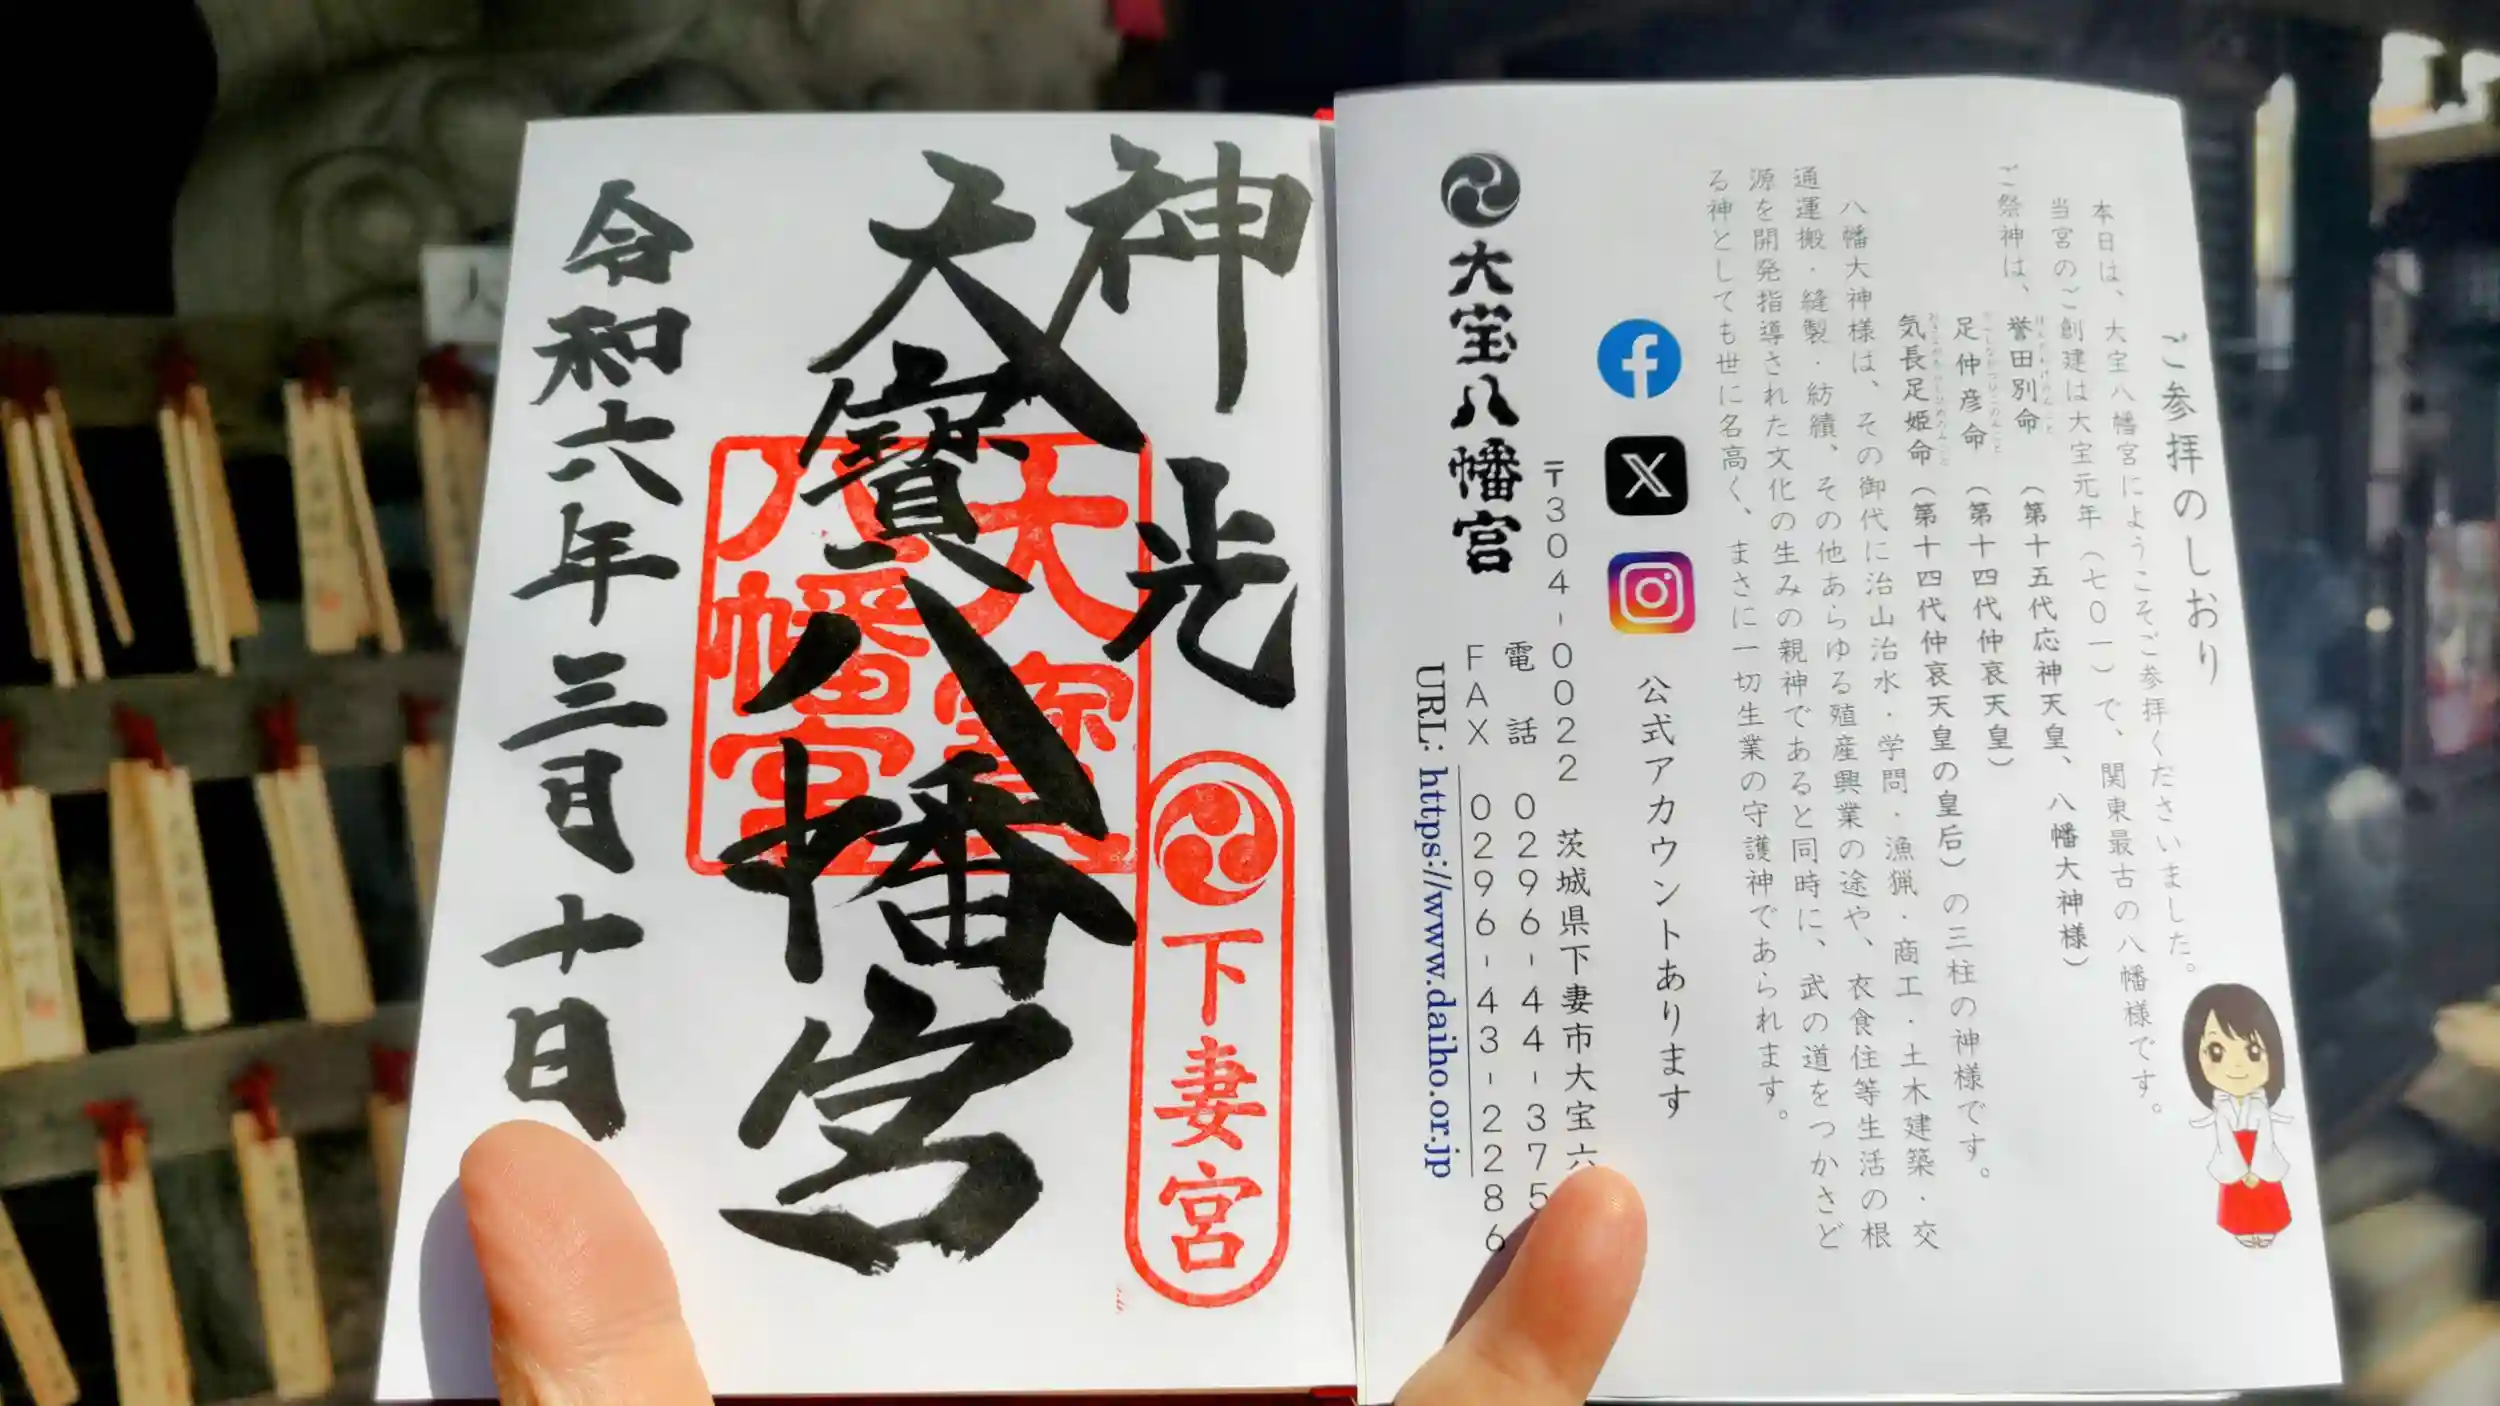 ご参拝のしおり
本日は、大宝八幡宮にようこそご参拝くださいました。
当宮のご創建は大宝元年（七〇一）で、関東最古の八幡様です。
ご祭神は、誉田別命（第十五代応神天皇、八幡大神様）
足仲彦命（第十四代仲哀天皇）
気長足姫命（第十四代仲哀天皇の皇后）の三柱の神様です。
八幡大神様は、その御代に治山治水・学問・漁猟・商工・土木建築・交
通運搬・縫製・紡績、その他あらゆる殖産興業の途や、衣食住等生活の根
源を開発指導された文化の生みの親神であると同時に、武の道をつかさど
る神としても世に名高く、まさに一切生業の守護神であられます。
公式アカウントあります
〒304-0022 茨城県下妻市大宝六
電話 0296-44-375
FAX 0296-43-2286
大宝八幡宮
URL: https://www.daiho.or.jp
神光
下妻宮
大寳八幡宮
大寳
八幡宮
令和六年三月十日